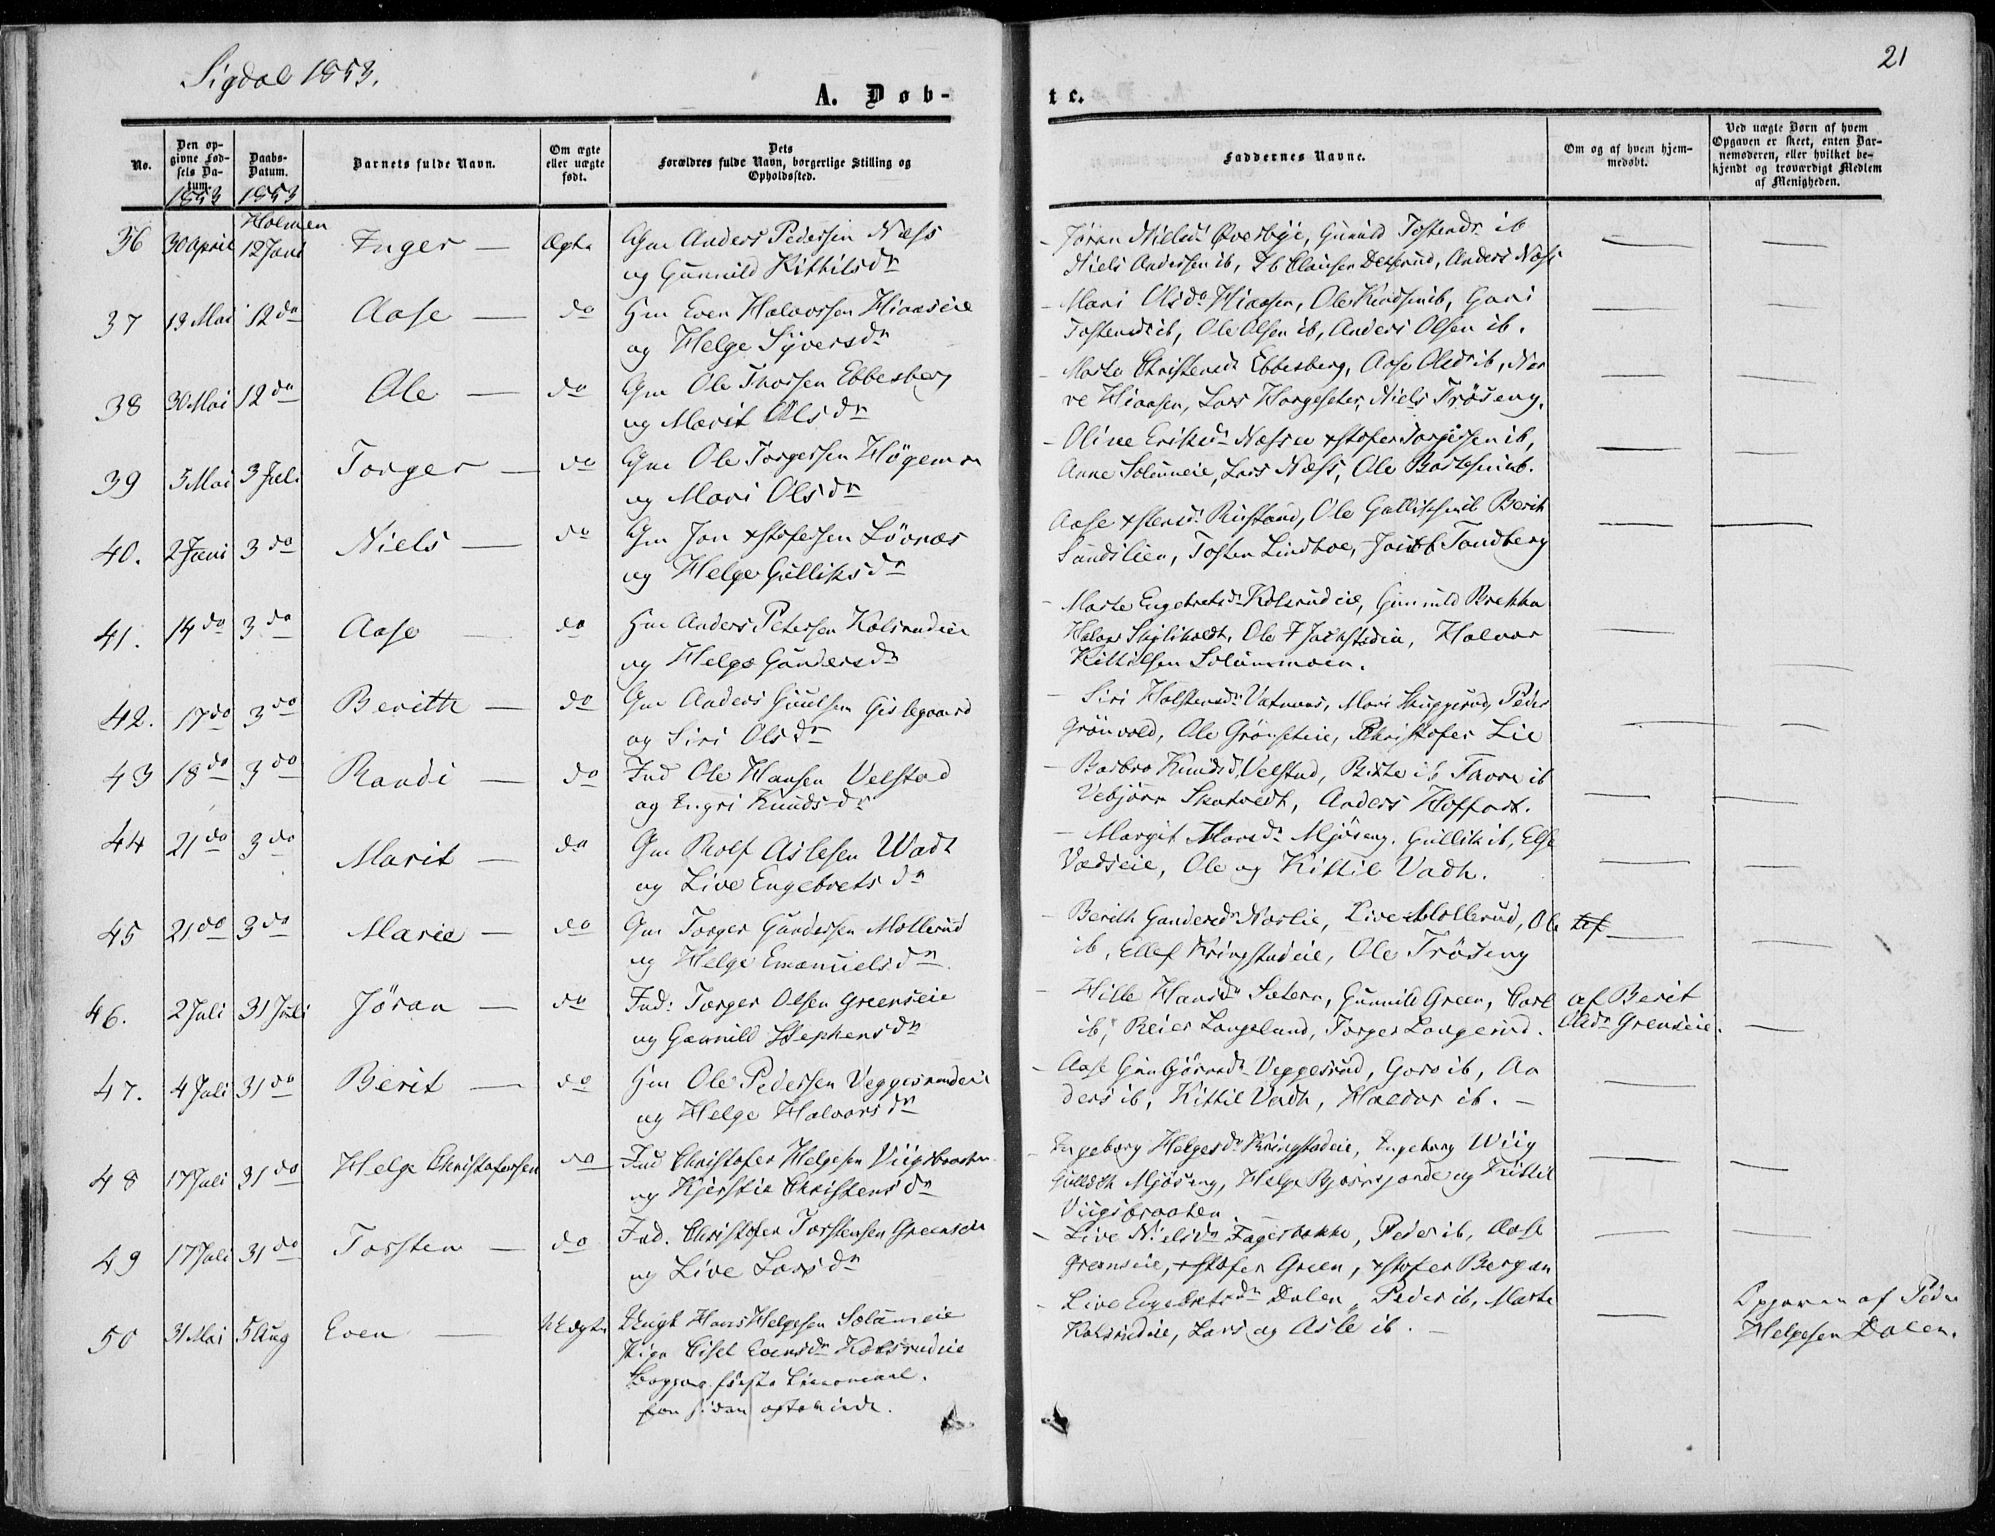 Sigdal 1853.
21
A. Døb-
te.
No.
Den op-
givne Fød-
sels Da-
tum.
1853
Daabs-
Datum.
1853
Barnets fulde Navn.
Om ægte
eller uægte
født.
Dets
Forældres fulde Navn, borgerlige Stilling og
Opholdssted.
Faddernes Navne.
Om og af hvem hjem-
medøbt.
Ved uægte Børn af hvem
Opgaven er skeet, enten Bar-
nemoderen, eller hvilket be-
kjendt og troværdigt Medlem
af Menigheden.
Holmen
36 30 April 12 Juni Inger — Ægte Gm Anders Pedersen Næss
og Gunnild Kittilsdr
Jøran Nielsd Øverbye, Gunild Tostensdr ib
Niels Andersen ib, Clausen Anders Næss
37 13 Mai 12 do Aase — do Hm Even Halvorsen Hiaaseie
og Helge Syversdr
Mari Olsdr Hiaasen, Ole Knudsen ib, Guri
Tostensd ib, Ole Olsen ib, Anders Olsen ib.
38 30 Mai 12 do Ole — do Gm Ole Thorsen Ebbesberg
og Marit Olsdr
Marte Christensd Ebbesberg, Aase Olsdr ib, Nar
ve Hiaasen, Lars Horgeseter, Niels Trøseng.
39 5 Mai 3 Juli Torger — do Gm Ole Torgersen Høgemoen
og Mari Olsdr
Oline Eriksdr Næsse xstofer Torgersen ib,
Anne Solumeie, Lars Næss, Ole ib.
40. 2 Juni 3 do Niels — do Gm Jon xstofersen Lövnæs
og Helge Gulliksdr
Aase xstensd Rustand, Ole Gulliksen ib Berit
Sandslien, Tosten Lindboe, Jacob Tandberg
41. 14 do 3 do Aase — do Hm Anders Petersen Kolsrudeie
og Helge Gundersdr
Marte Engebretsdr Kolsrudeie, Gunnild Brekke
Halvor Ole Halvor
Kittilsen Solummoen.
42. 17 do 3 do Berith — do Gm Anders Guulsen Gislegaard
og Siri Olsdr
Siri Holstensdr Vatnaas, Mari Skuggerud, Peder
Grønvold, Ole Christofer Lie
43 18 do 3 do Randi — do Ind Ole Hansen Velstad
og Ingri Knudsdr
Barbro Knudsd Velstad, Birte ib Thore ib
Vebjørn Skatvedt, Anders Hoffart.
44 21 do 3 do Marit — do Gm Rolf Aslesen Wadt
og Live Engebretsdr
Margit Mjøseng. Gullik ib, Else
Vadseie, Ole og Kittil Vadh.
45 21 do 3 do Marie — do Gm Torger Gundersen Mollerud
og Helge Emanuelsdr
Berith Gundersdr Norlie, Live Mollerud, Ole
ib, Ellef Kringstadeie, Ole Trøseng
46. 2 Juli 31 Juli Jøran — do Ind: Torger Olsen Greenseie
og Gunnild Stephensdr
Hille Hansdr Sætern, Gunnild Green, Carl
ib, Reier Langeland, Torger Langerud.
af Berit
Olsdr Grenseie.
47. 4 Juli 31 do Berit — do Hm Ole Pedersen Veggesrudeie
og Helge Halvorsdr
Aase Veggesrud, Goro ib, An
ders ib, Kittil Vadh, Haldor ib. —
48 17 Juli 31 do Helge Christofersen do Ind Christofer Helgesen Viigsbraaten
og Kjerstie Christensdr
Ingeborg Helgesdr Kringstadeie, Ingeborg Wiig
Gullik Mjøseng, Helge og Kittil
Viigsbraaten.
49 17 Juli 31 do Torsten — do Ind. Christofer Torstensen Greenseie
og Live Larsdr
Live Nielsdr Fagerbakke, Peder ib, Aase
Grenseie, xstofer Green, xstofer Bergan
50 31 Mai 5 Aug Even — Uægte Ungk Hans Helgesen Solumeie
Pige Sisel Evensdr Kolsrudeie
Begges første Leiermaal.
Live Engebretsdr Dalen, Peder ib, Marte
Kolsrudeie, Lars og Asle ib. —
Opgaven af Peder
Helgesen Dalen.